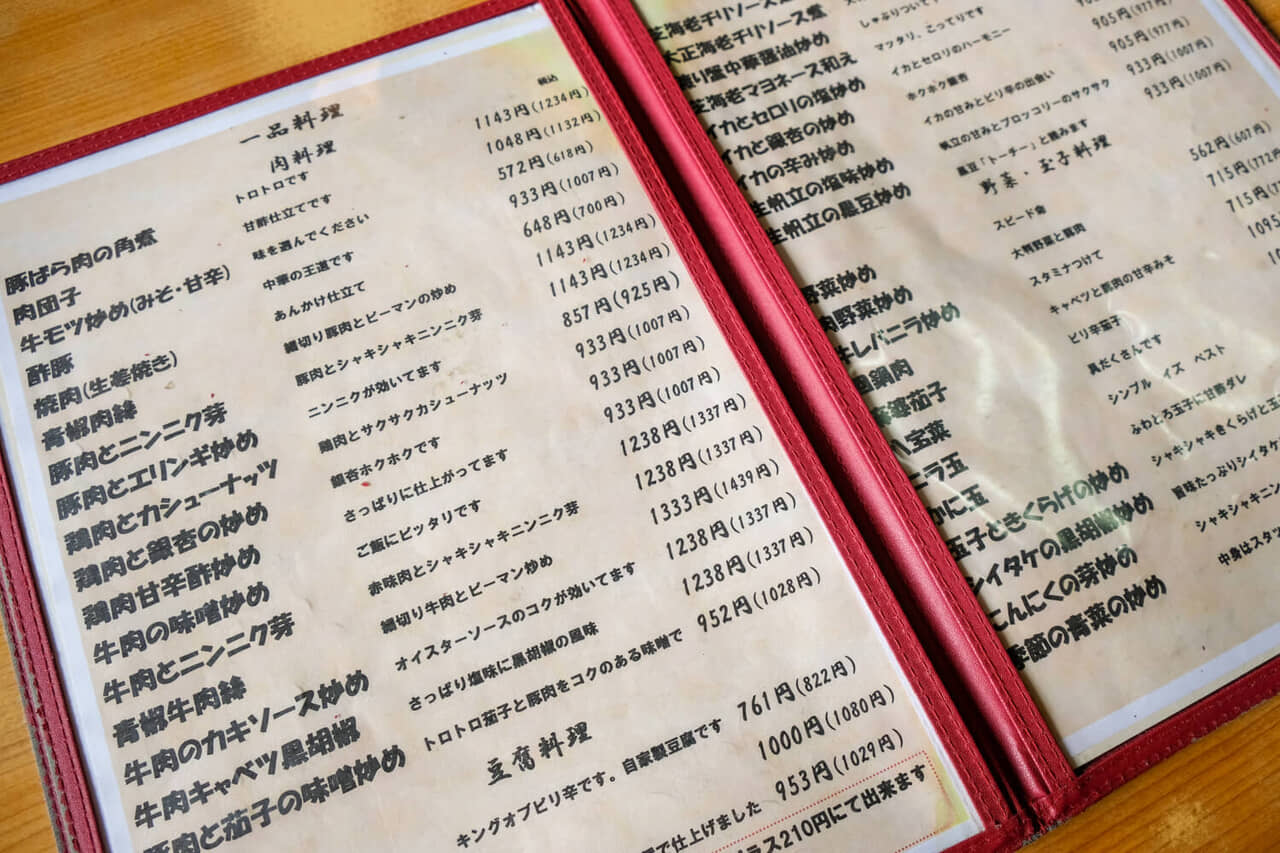 一品料理
税込
肉料理
豚ばら肉の角煮 トロトロです 1143円(1234円)
肉団子 甘酢仕立てです 1048円(1132円)
牛モツ炒め(みそ・甘辛) 味を選んでください 572円(618円)
酢豚 中華の王道です 933円(1007円)
焼肉(生姜焼き) あんかけ仕立て 648円(700円)
青椒肉絲 細切り豚肉とピーマンの炒め 1143円(1234円)
豚肉とニンニク芽 豚肉とシャキシャキニンニク芽 1143円(1234円)
豚肉とエリンギ炒め ニンニクが効いてます 857円(925円)
鶏肉とカシューナッツ 鶏肉とサクサクカシューナッツ 933円(1007円)
鶏肉と銀杏の炒め 銀杏ホクホクです 933円(1007円)
鶏肉甘辛酢炒め さっぱりに仕上がってます 933円(1007円)
牛肉の味噌炒め ご飯にピッタリです 1238円(1337円)
牛肉とニンニク芽 赤味肉とシャキシャキニンニク芽 1238円(1337円)
青椒牛肉絲 細切り牛肉とピーマン炒め 1333円(1439円)
牛肉のカキソース炒め オイスターソースのコクが効いてます 1238円(1337円)
牛肉キャベツ黒胡椒 さっぱり塩味に黒胡椒の風味 1238円(1337円)
豚肉と茄子の味噌炒め トロトロ茄子と豚肉をコクのある味噌で 952円(1028円)
豆腐料理
キングオブピリ辛です。自家製豆腐です 761円(822円)
1000円(1080円)
で仕上げました 953円(1029円)
210円にて出来ます
海老チリソース煮
正海老チリソース煮
中華醤油炒め しゃぶりついて
海老マヨネーズ和え マッタリ、こってりです
イカとセロリの塩炒め イカとセロリのハーモニー 905円(977円)
イカと銀杏の炒め ホクホク銀杏 905円(977円)
イカの辛み炒め イカの甘みとピリ辛の出会い
生帆立の塩味炒め 帆立の甘みとブロッコリーのサクサク 933円(1007円)
生帆立の黒豆炒め 黒豆「トーチー」と読みます 933円(1007円)
野菜・玉子料理
野菜炒め スピード命 562円(607円)
肉野菜炒め 大判野菜と豚肉 715円(772円
レバニラ炒め スタミナつけて 715円(7
回鍋肉 キャベツと豚肉の甘辛みそ 1095
茄子 ピリ辛茄子
八宝菜 具だくさんです
ニラ玉 シンプル イズ ベスト
かに玉 ふわとろ玉子に甘酢ダレ
玉子ときくらげの炒め シャキシャキきくらげと玉
シイタケの黒胡椒炒め 旨味たっぷりシイタケ
にんにくの芽炒め シャキシャキニン
季節の青菜の炒め 中身はスタッ